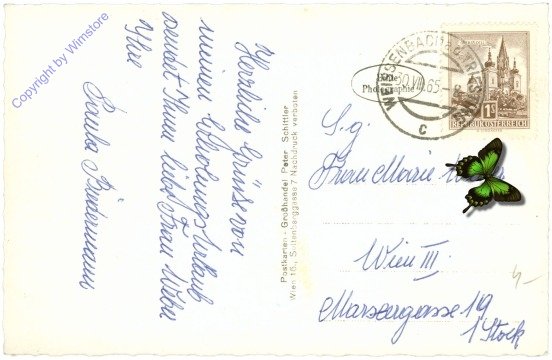 Copyright by Wimstore
Herzliche Grüsse von
meinem Erholungsurlaub
sendet Ihnen liebe Frau Weber
Ihre
Paula Biedermann
Postkarten - Großhandel Peter Schittler
Wien 16., Nachdruck verboten
Echte
Photographie
30.VIII.65
C
1S
REPUBLIK ÖSTERREICH
S.g.
Frau Marie
Wien III.
Marxergasse 19
1 Stock
4-